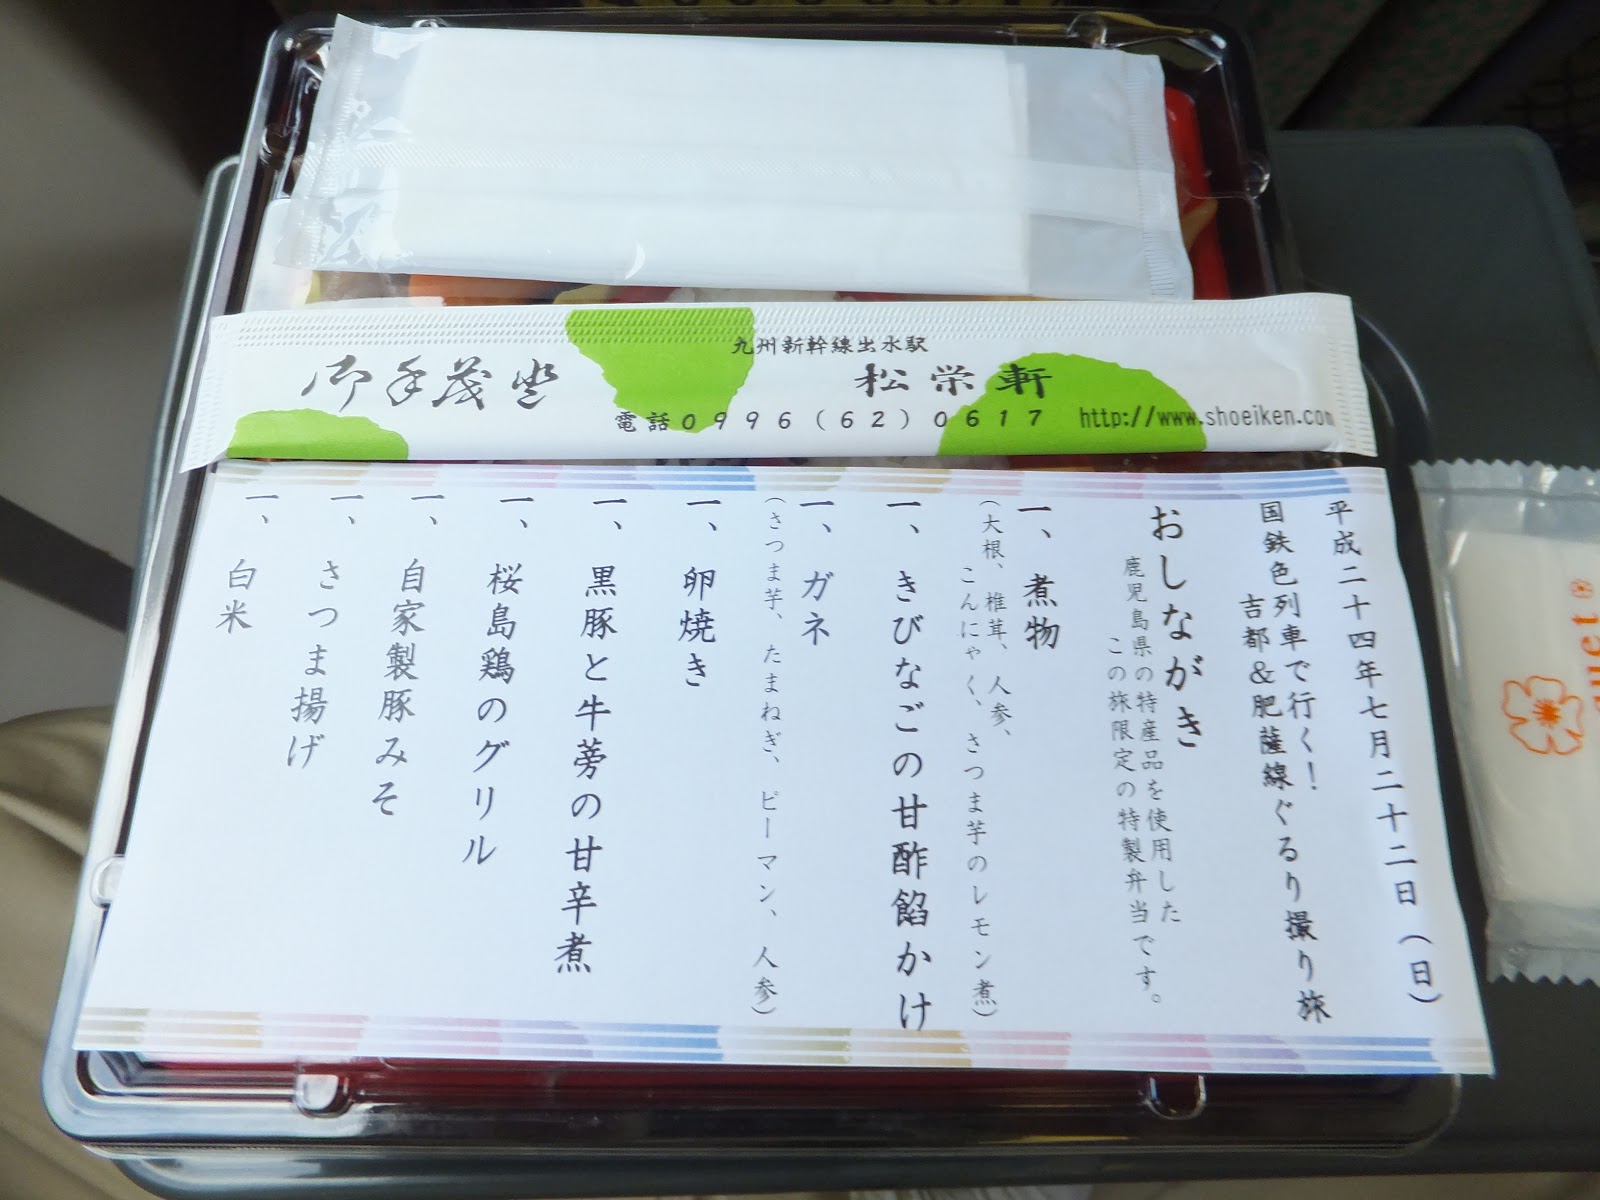 御手茂登
九州新幹線出水駅
松栄軒
電話0996(62)0617 http://www.shoeiken.com
平成二十四年七月二十二日(日)
国鉄色列車で行く!
吉都&肥薩線ぐるり撮り旅
おしながき
鹿児島県の特産品を使用した
この旅限定の特製弁当です。
一、煮物
(大根、椎茸、人参、
こんにゃく、さつま芋のレモン煮)
一、きびなごの甘酢餡かけ
一、ガネ
(さつま芋、たまねぎ、ピーマン、人参)
一、卵焼き
一、黒豚と牛蒡の甘辛煮
一、桜島鶏のグリル
一、自家製豚みそ
一、さつま揚げ
一、白米